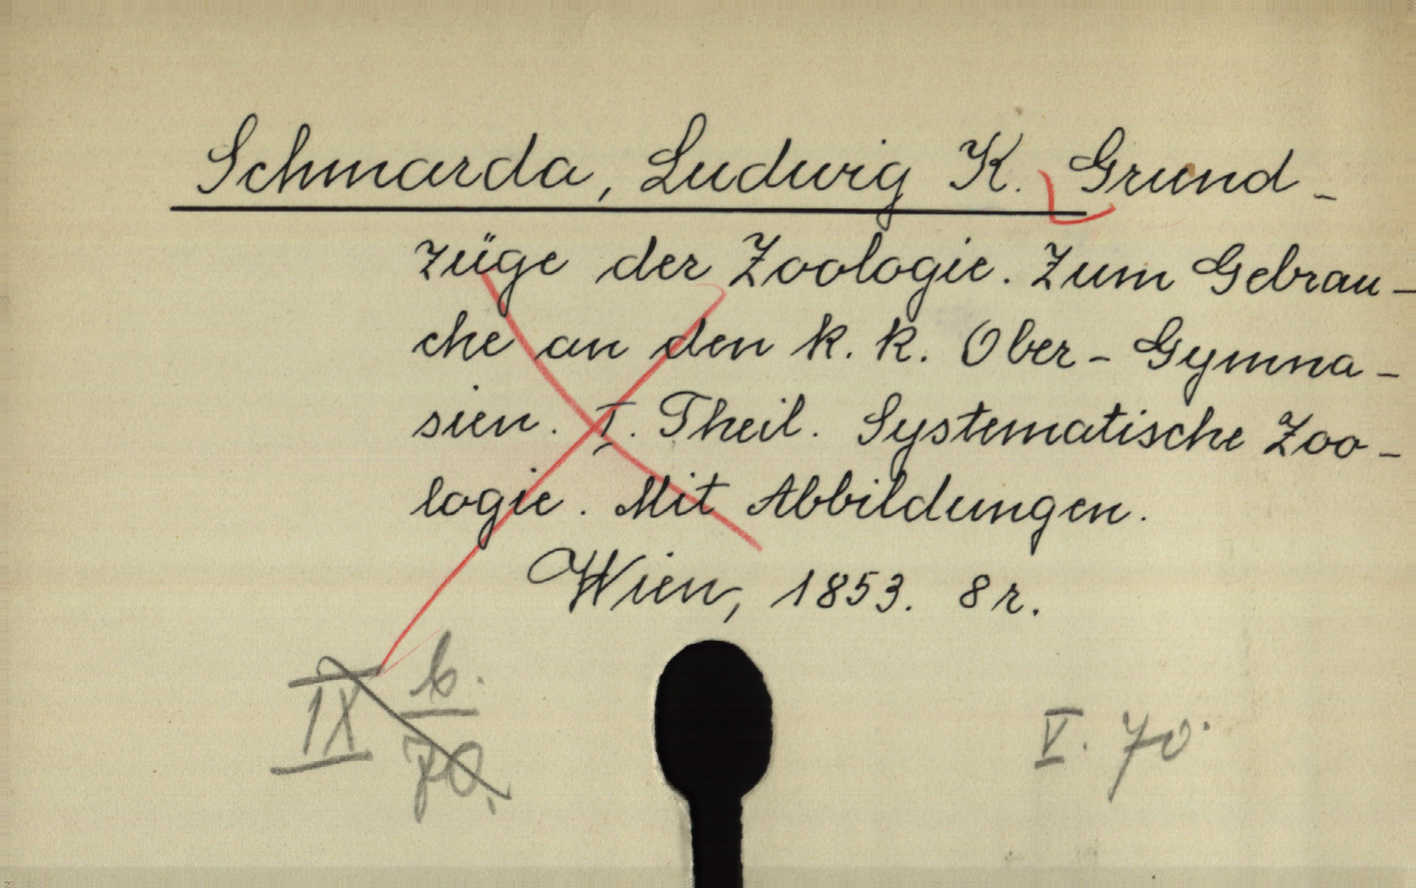 Schmarda, Ludwig K. Grund-
züge der Zoologie. Zum Gebrau-
che an den k. k. Ober-Gymna-
sien. I. Theil. Systematische Zoo-
logie. Mit Abbildungen.
Wien, 1853. 8r.
IX b.
70.
V. 70.